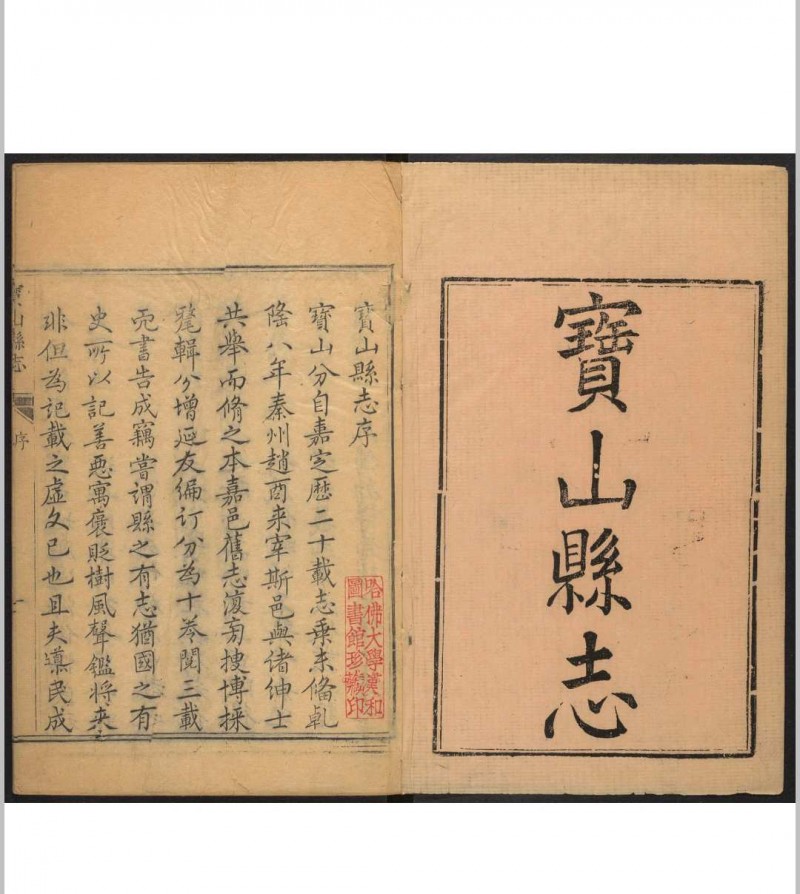 寶山縣志
寶山縣志序
寶山分自嘉定歷二十載志乗未偹乹
隆八年秦州趙酉来宰斯邑與诸紳士
共舉而脩之本嘉邑舊志復旁搜博採
釐輯分增延友编订分為十卷閱三載
而書告成竊嘗謂縣之有志猶國之有
史所以記善惡寓褒貶樹風聲鑑将来
非但為記載之虛文已也且夫導民成
寶山縣志
序
一
哈佛大學漢和
圖書館珍藏印